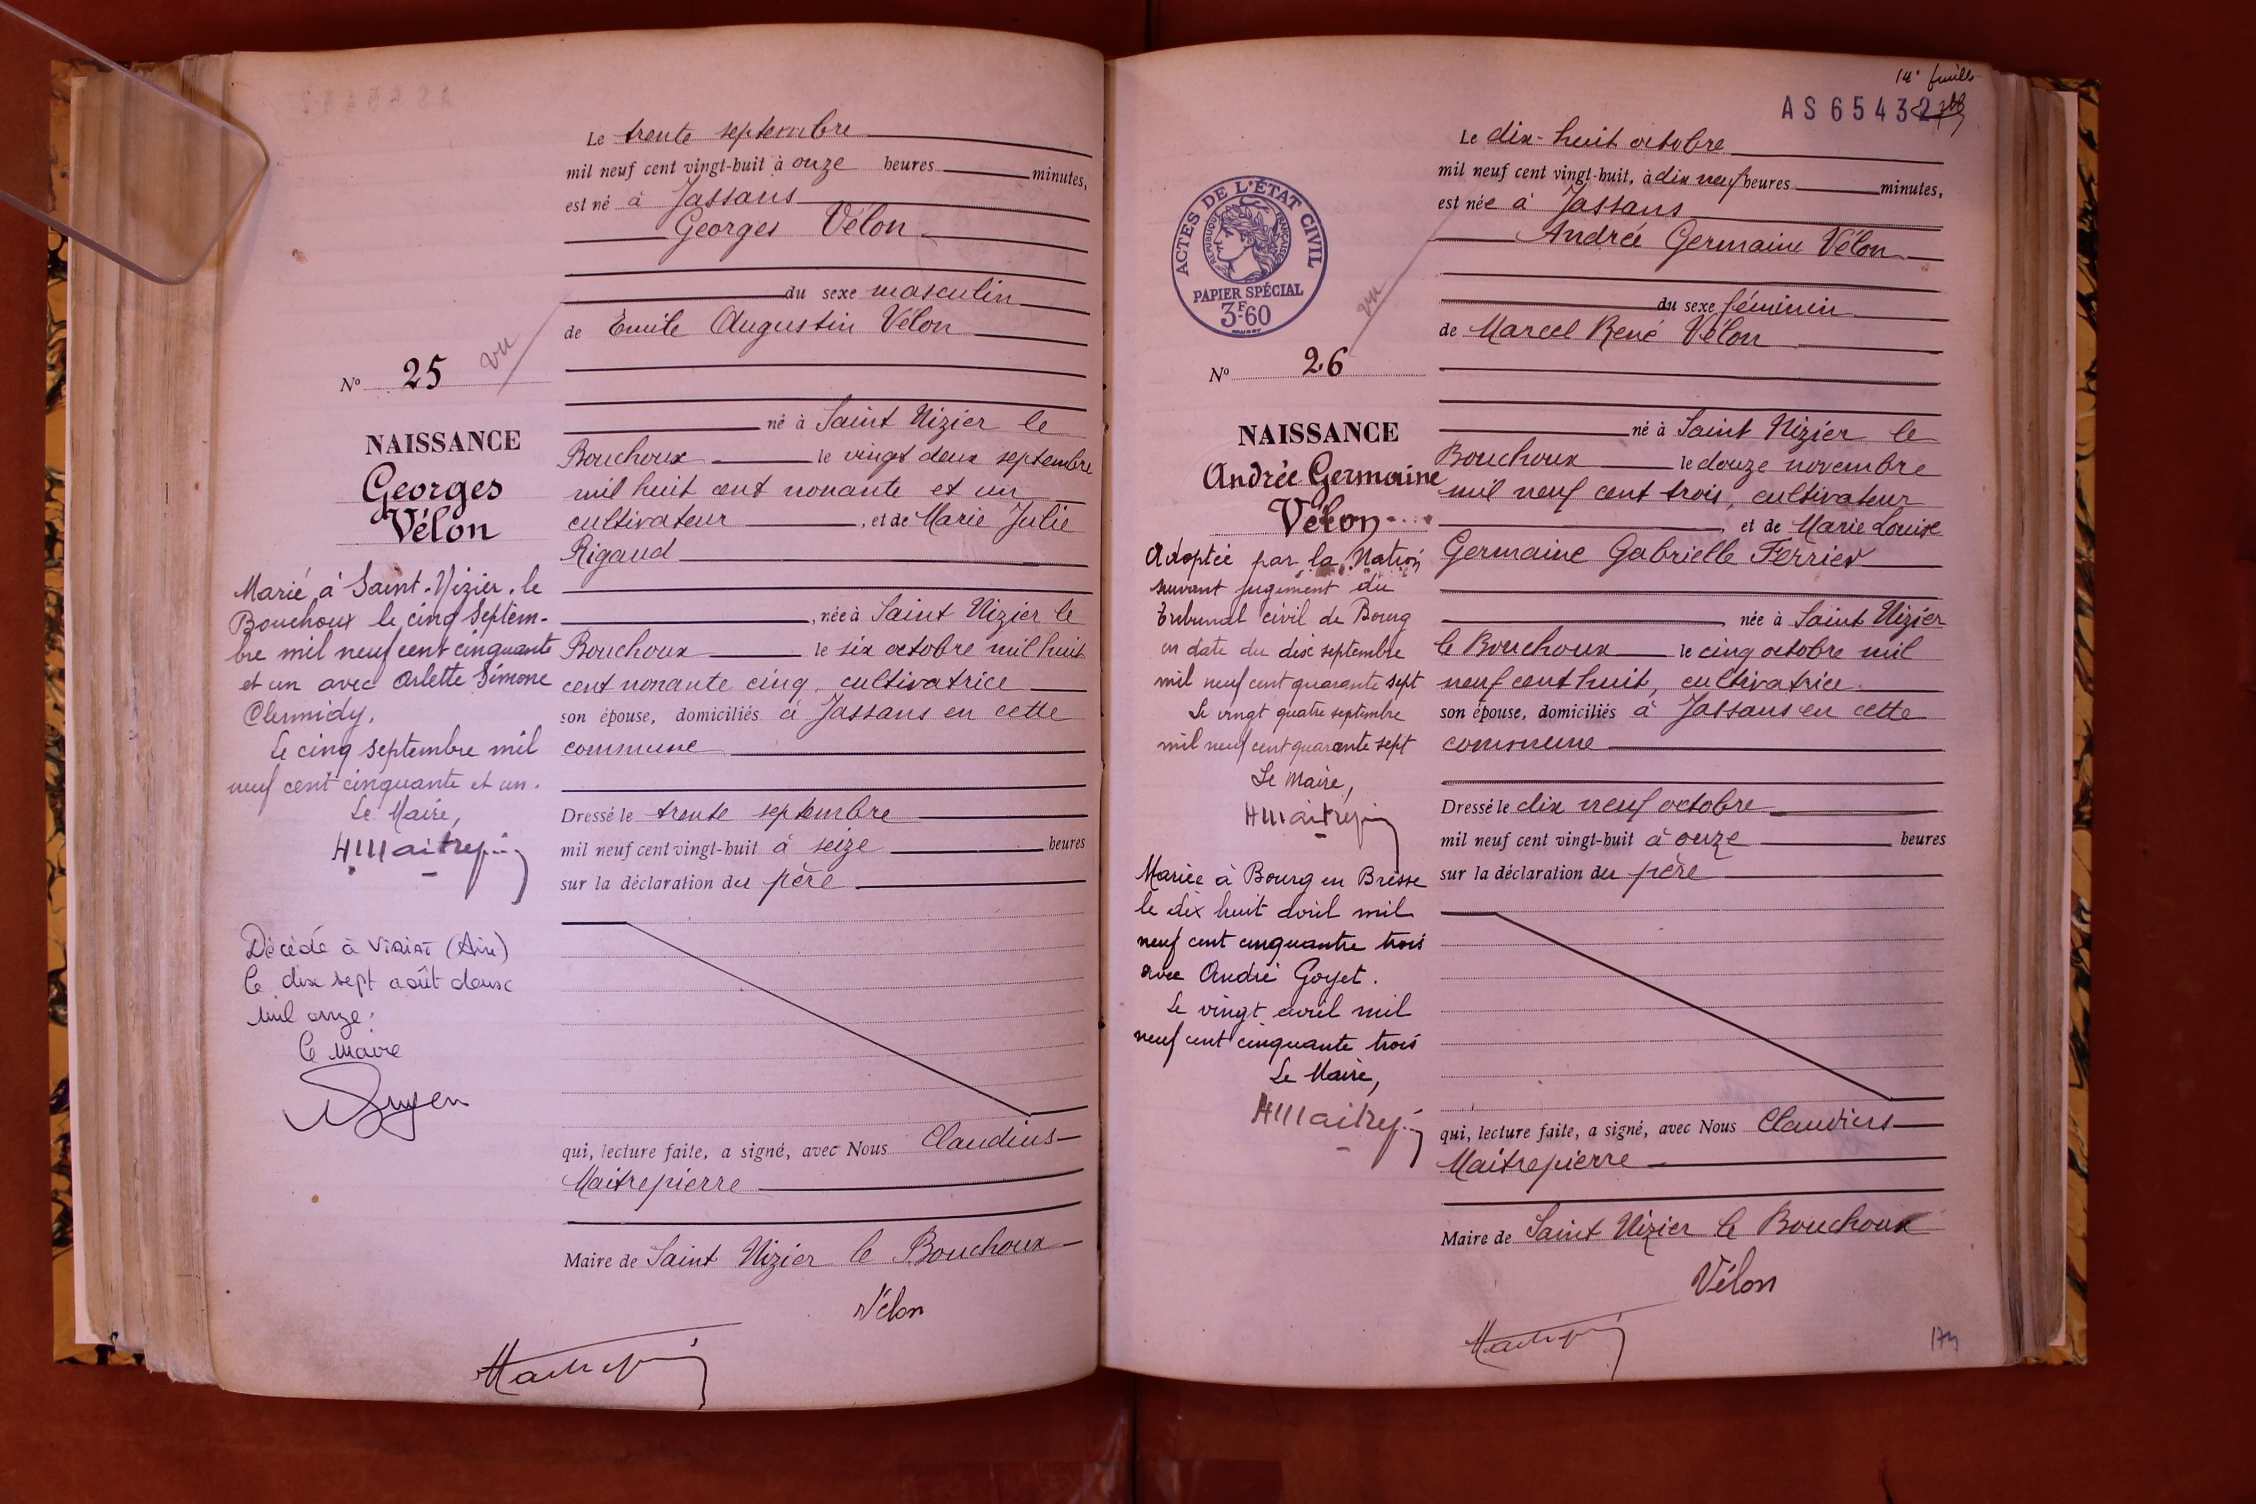 Le trente septembre
mil neuf cent vingt-huit à onze heures minutes,
est né à Jassans
Georges Vélon
du sexe masculin
de Emile Augustin Vélon
vu
N° 25
né à Saint Nizier le
Bouchoux le vingt deux septembre
mil huit cent nonante et un
cultivateur , et de Marie Julie
Rigaud
, née à Saint Nizier le
Bouchoux le six octobre mil huit
cent nonante cinq, cultivatrice
son épouse, domiciliés à Jassans en cette
commune
Dressé le trente septembre
mil neuf cent vingt-huit à seize heures
sur la déclaration du père
qui, lecture faite, a signé, avec Nous Claudius
Maitrepierre
Maire de Saint Nizier le Bouchoux
Vélon
NAISSANCE
Georges
Vélon
Marié à Saint-Nizier-le
Bouchoux le cinq Septem-
bre mil neuf cent cinquante
et un avec Arlette Simone
Clermidy.
Le cinq septembre mil
neuf cent cinquante et un.
Le Maire,
Décédé à Viriat (Ain)
le dix sept août deux
mil onze.
Le Maire
14e feuille
AS65432
Le dix-huit octobre
mil neuf cent vingt-huit, à dix neuf heures minutes,
est née à Jassans
Andrée Germaine Vélon
du sexe féminin
de Marcel René Vélon
ACTES DE L'ÉTAT CIVIL
RÉPUBLIQUE FRANÇAISE
PAPIER SPÉCIAL
3F.60
vu
N° 26
né à Saint Nizier le
Bouchoux le douze novembre
mil neuf cent trois, cultivateur
, et de Marie Louise
Germaine Gabrielle Ferrier
née à Saint Nizier
le Bouchoux le cinq octobre mil
neuf cent huit, cultivatrice
son épouse, domiciliés à Jassans en cette
commune
Dressé le dix neuf octobre
mil neuf cent vingt-huit à onze heures
sur la déclaration du père
qui, lecture faite, a signé, avec Nous Claudius
Maitrepierre
Maire de Saint Nizier le Bouchoux
Vélon
NAISSANCE
Andrée Germaine
Vélon
Adoptée par la Nation
suivant jugement du
Tribunal civil de Bourg
en date du dix septembre
mil neuf cent quarante sept
Le vingt quatre septembre
mil neuf cent quarante sept
Le Maire,
Mariée à Bourg en Bresse
le dix huit avril mil
neuf cent cinquante trois
avec André Goyet.
Le vingt avril mil
neuf cent cinquante trois
Le Maire,